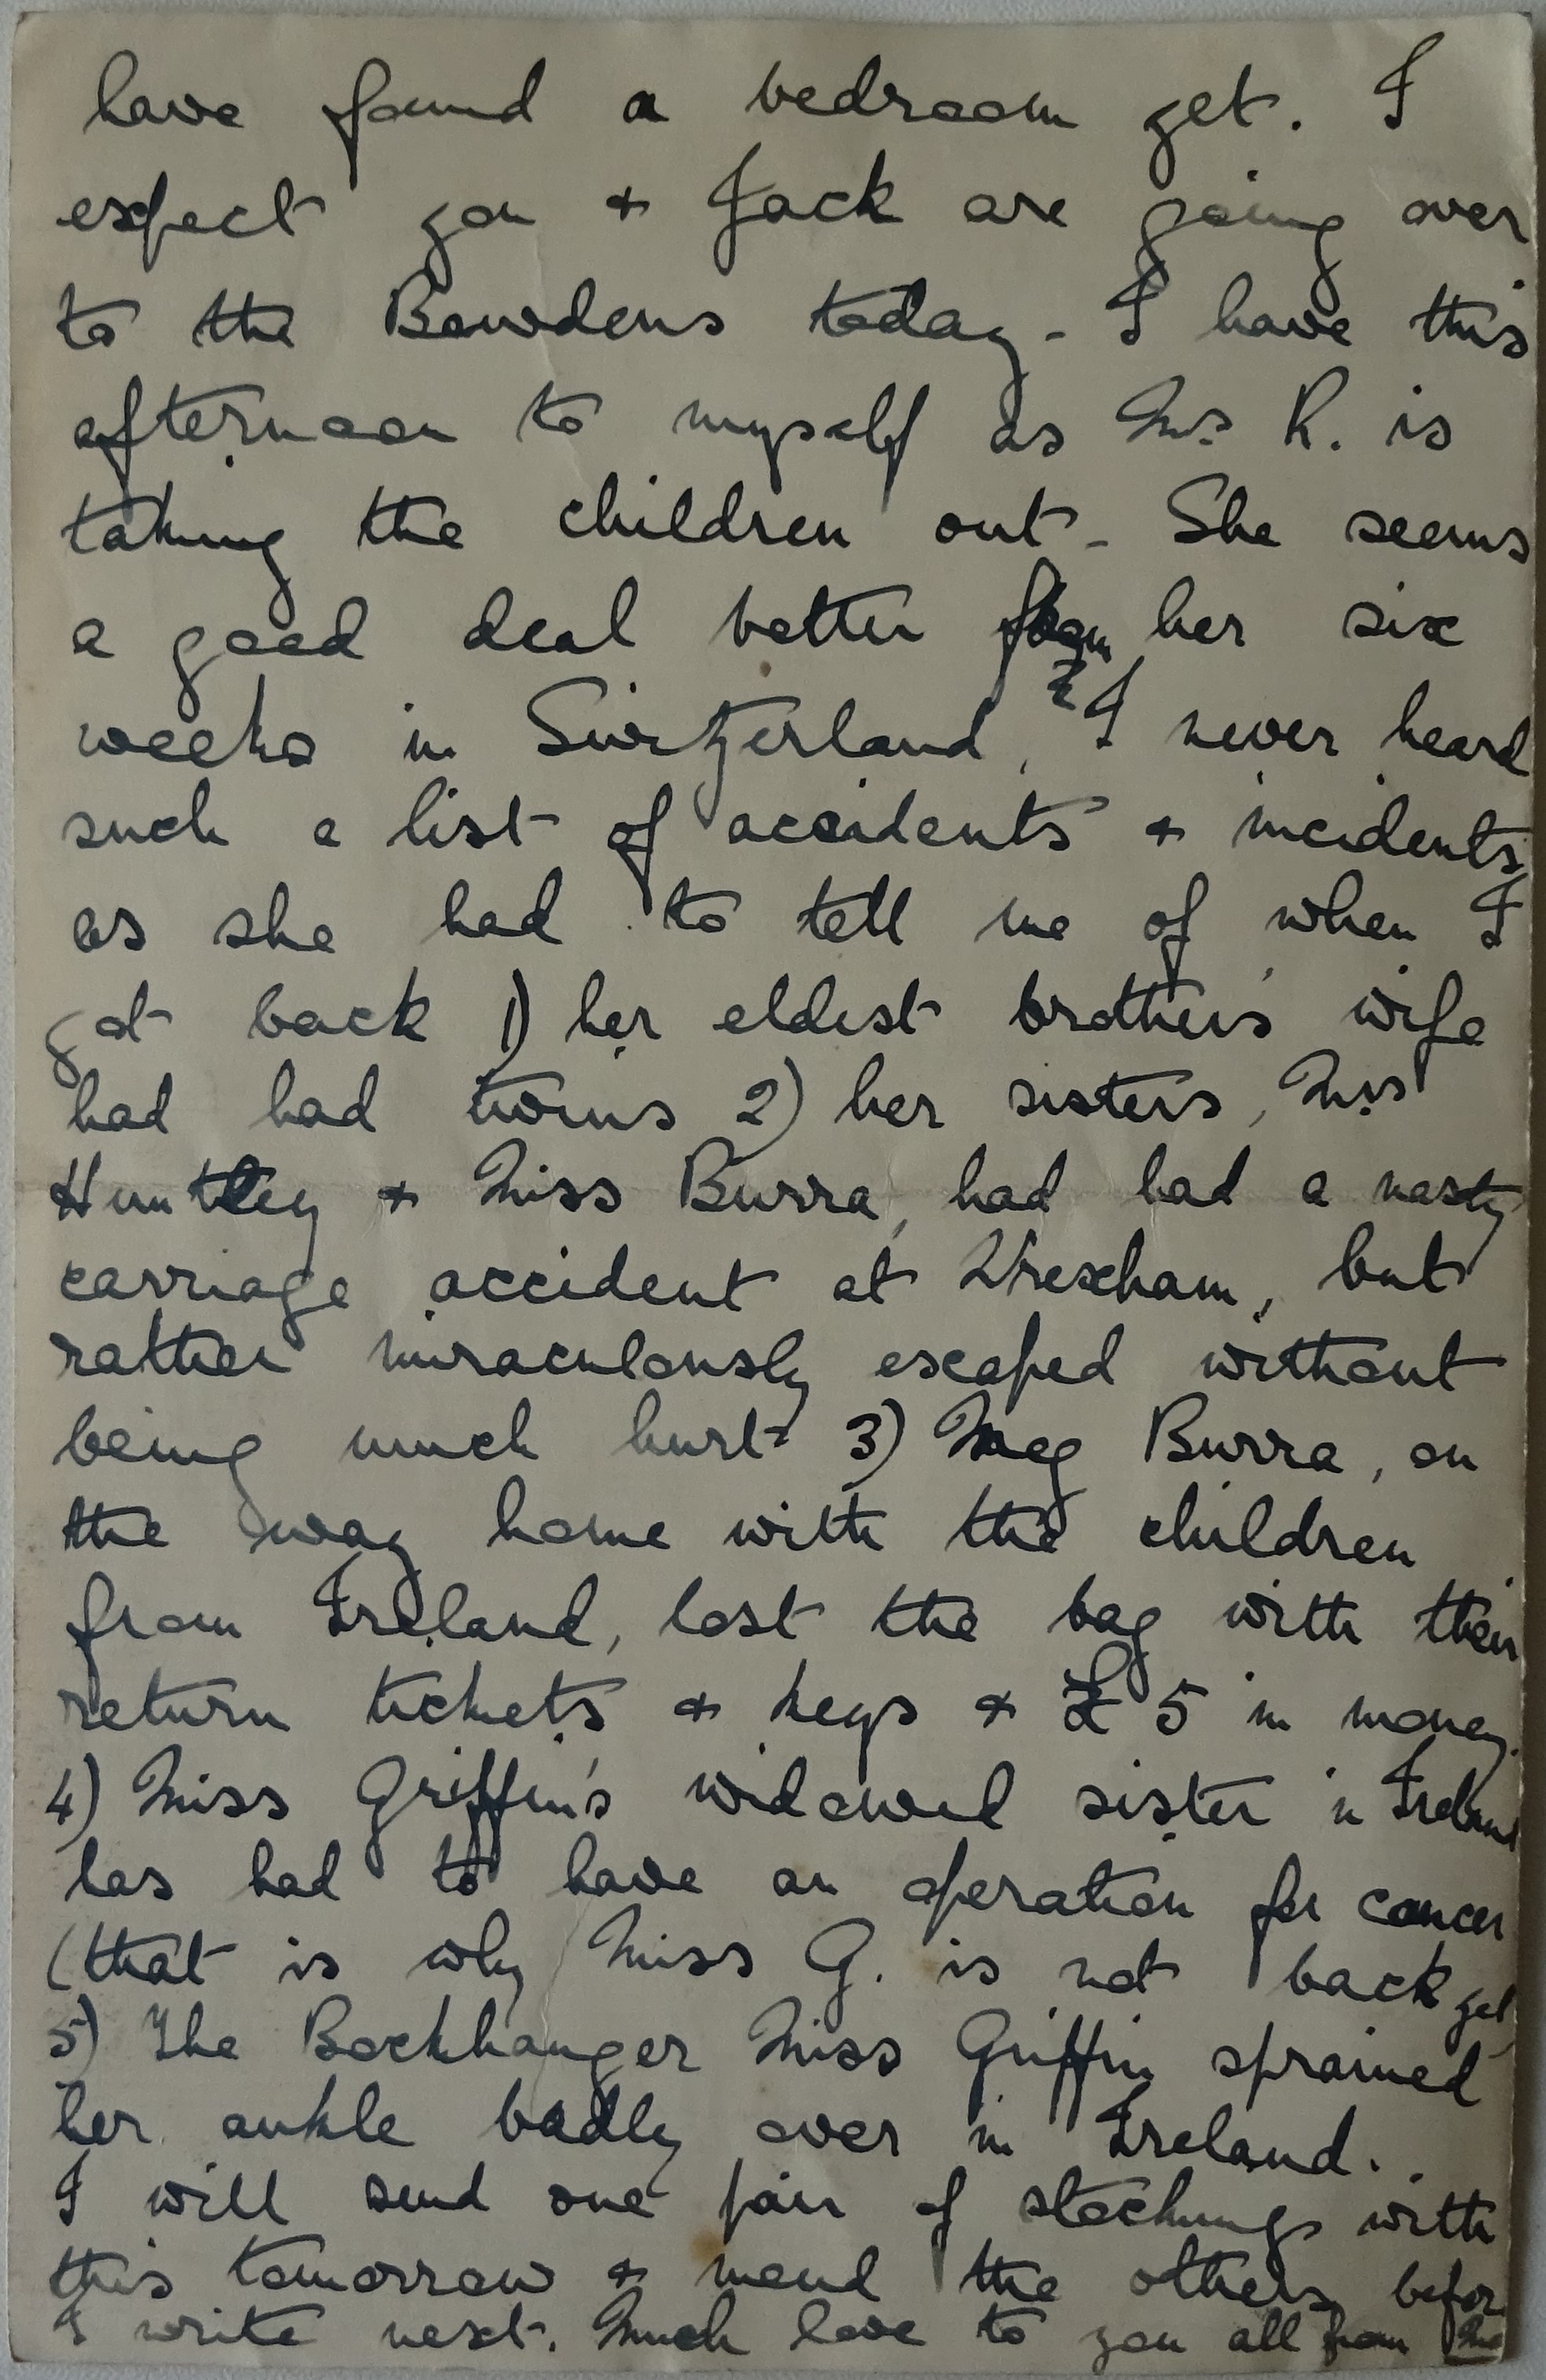 have found a bedroom yet. I
expect you & Jack are going over
to the Bowdens today - I have this
afternoon to myself as Mrs R. is
taking the children out - She seems
a good deal better from her six
weeks in Switzerland, & I never heard
such a list of accidents & incidents
as she had to tell me of when I
got back 1) her eldest brother's wife
had had twins 2) her sisters, Mrs
Huntley & Miss Burra, had had a nasty
carriage accident at Wrexham, but
rather miraculously escaped without
being much hurt 3) Meg Burra, on
the way home with the children
from Ireland, lost the bag with their
return tickets & keys & £5 in money.
4) Miss Griffin's widowed sister in Ireland
has had to have an operation for cancer
(that is why Miss G. is not back yet)
5) The Bockhanger Miss Griffin sprained
her ankle badly over in Ireland.
I will send one pair of stockings with
this tomorrow & mend the others before
I write next. Much love to you all from